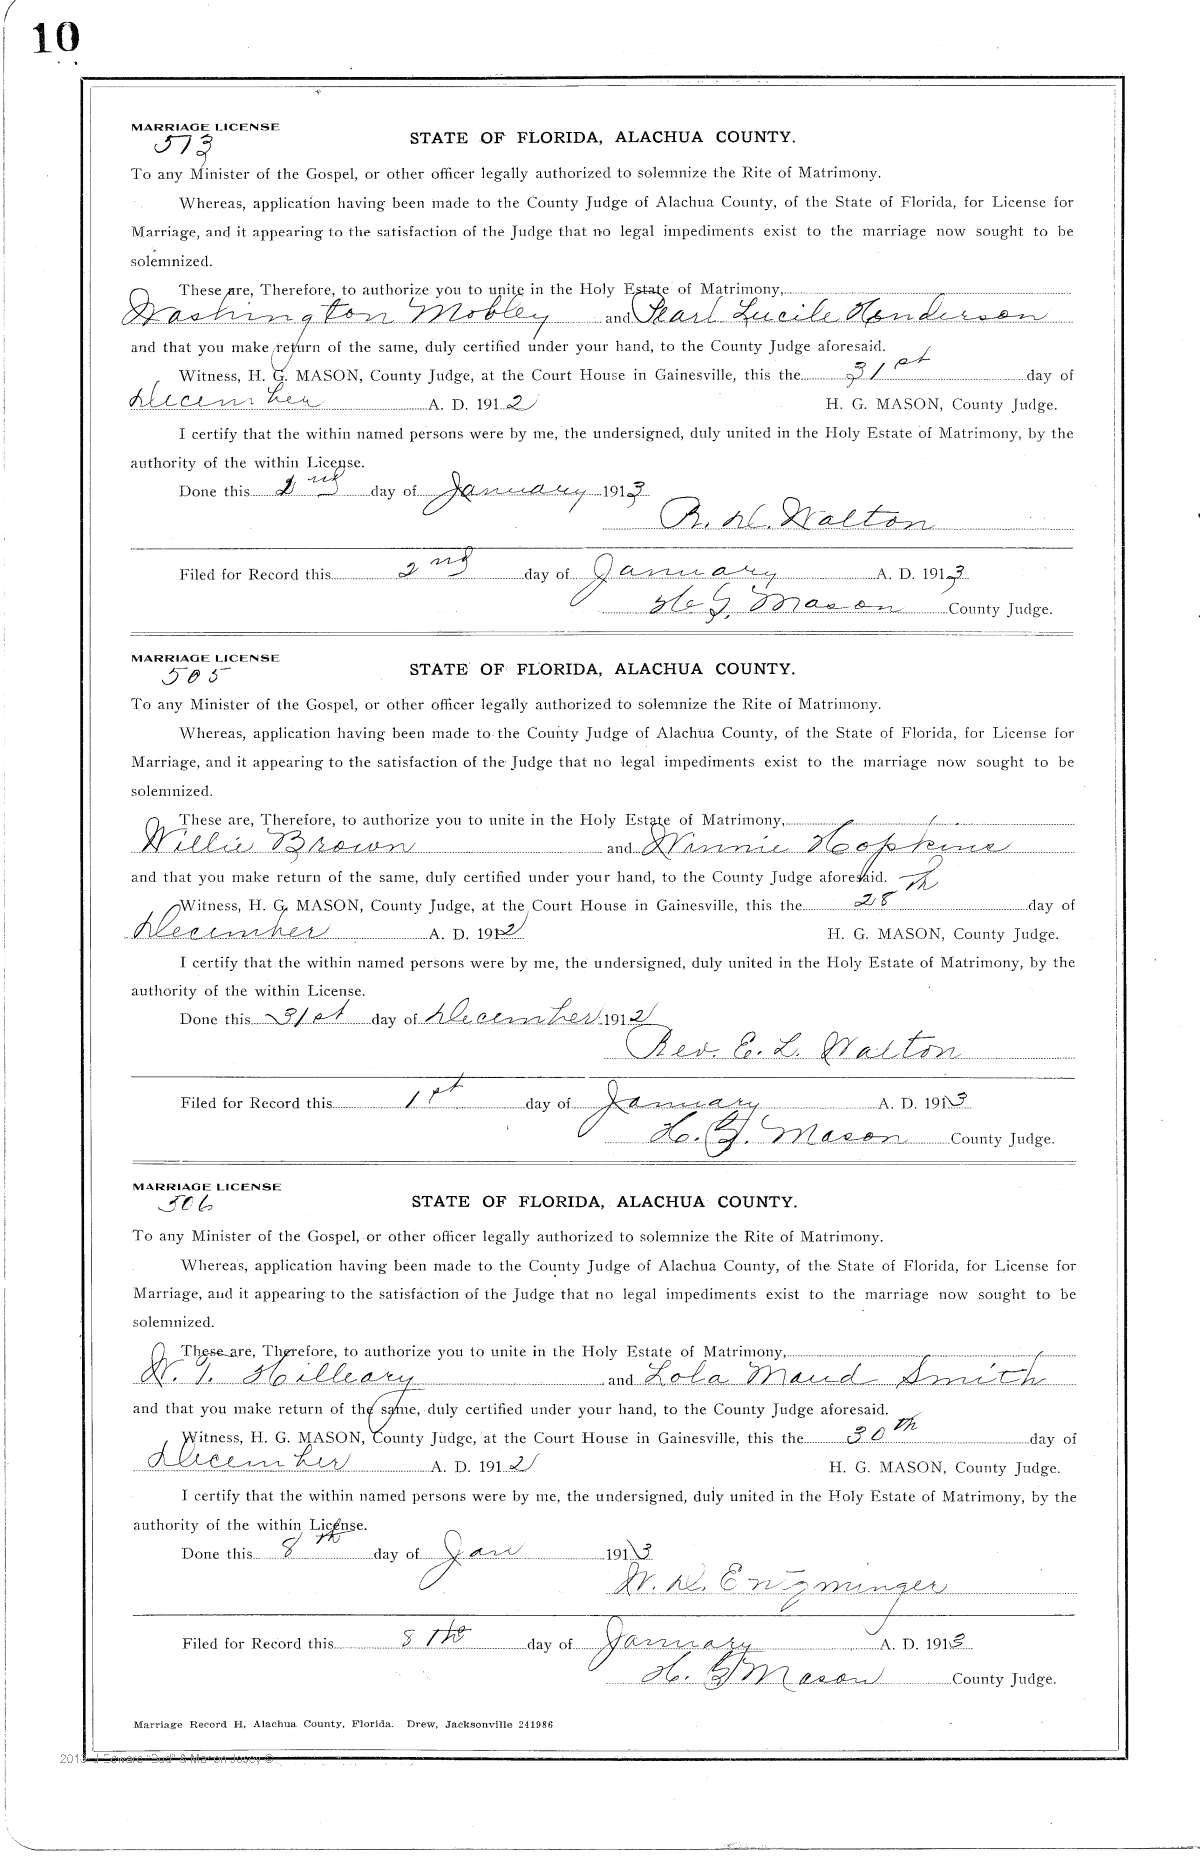 10
MARRIAGE LICENSE
573
STATE OF FLORIDA, ALACHUA COUNTY.
To any Minister of the Gospel, or other officer legally authorized to solemnize the Rite of Matrimony.
Whereas, application having been made to the County Judge of Alachua County, of the State of Florida, for License for
Marriage, and it appearing to the satisfaction of the Judge that no legal impediments exist to the marriage now sought to be
solemnized.
These are, Therefore, to authorize you to unite in the Holy Estate of Matrimony,
Washington Mobley and Pearl Lucile Henderson
and that you make return of the same, duly certified under your hand, to the County Judge aforesaid.
Witness, H. G. MASON, County Judge, at the Court House in Gainesville, this the 31st day of
December A. D. 1912 H. G. MASON, County Judge.
I certify that the within named persons were by me, the undersigned, duly united in the Holy Estate of Matrimony, by the
authority of the within License.
Done this 2nd day of January 1913
R. H. Walton
Filed for Record this 2nd day of January A. D. 1913
H. G. Mason County Judge.
MARRIAGE LICENSE
505
STATE OF FLORIDA, ALACHUA COUNTY.
To any Minister of the Gospel, or other officer legally authorized to solemnize the Rite of Matrimony.
Whereas, application having been made to the County Judge of Alachua County, of the State of Florida, for License for
Marriage, and it appearing to the satisfaction of the Judge that no legal impediments exist to the marriage now sought to be
solemnized.
These are, Therefore, to authorize you to unite in the Holy Estate of Matrimony,
Willie Brown and Winnie Hopkins
and that you make return of the same, duly certified under your hand, to the County Judge aforesaid.
Witness, H. G. MASON, County Judge, at the Court House in Gainesville, this the 28th day of
December A. D. 1912 H. G. MASON, County Judge.
I certify that the within named persons were by me, the undersigned, duly united in the Holy Estate of Matrimony, by the
authority of the within License.
Done this 31st day of December 1912
Rev. E. L. Walton
Filed for Record this 1st day of January A. D. 1913
H. G. Mason County Judge.
MARRIAGE LICENSE
506
STATE OF FLORIDA, ALACHUA COUNTY.
To any Minister of the Gospel, or other officer legally authorized to solemnize the Rite of Matrimony.
Whereas, application having been made to the County Judge of Alachua County, of the State of Florida, for License for
Marriage, and it appearing to the satisfaction of the Judge that no legal impediments exist to the marriage now sought to be
solemnized.
These are, Therefore, to authorize you to unite in the Holy Estate of Matrimony,
W. T. Hilleary and Lola Maud Smith
and that you make return of the same, duly certified under your hand, to the County Judge aforesaid.
Witness, H. G. MASON, County Judge, at the Court House in Gainesville, this the 30th day of
December A. D. 1912 H. G. MASON, County Judge.
I certify that the within named persons were by me, the undersigned, duly united in the Holy Estate of Matrimony, by the
authority of the within License.
Done this 8th day of Jan 1913
W. H.
Filed for Record this 8th day of January A. D. 1913
H. G. Mason County Judge.
Marriage Record H, Alachua County, Florida. Drew, Jacksonville 241986
J Edward "Bud" &